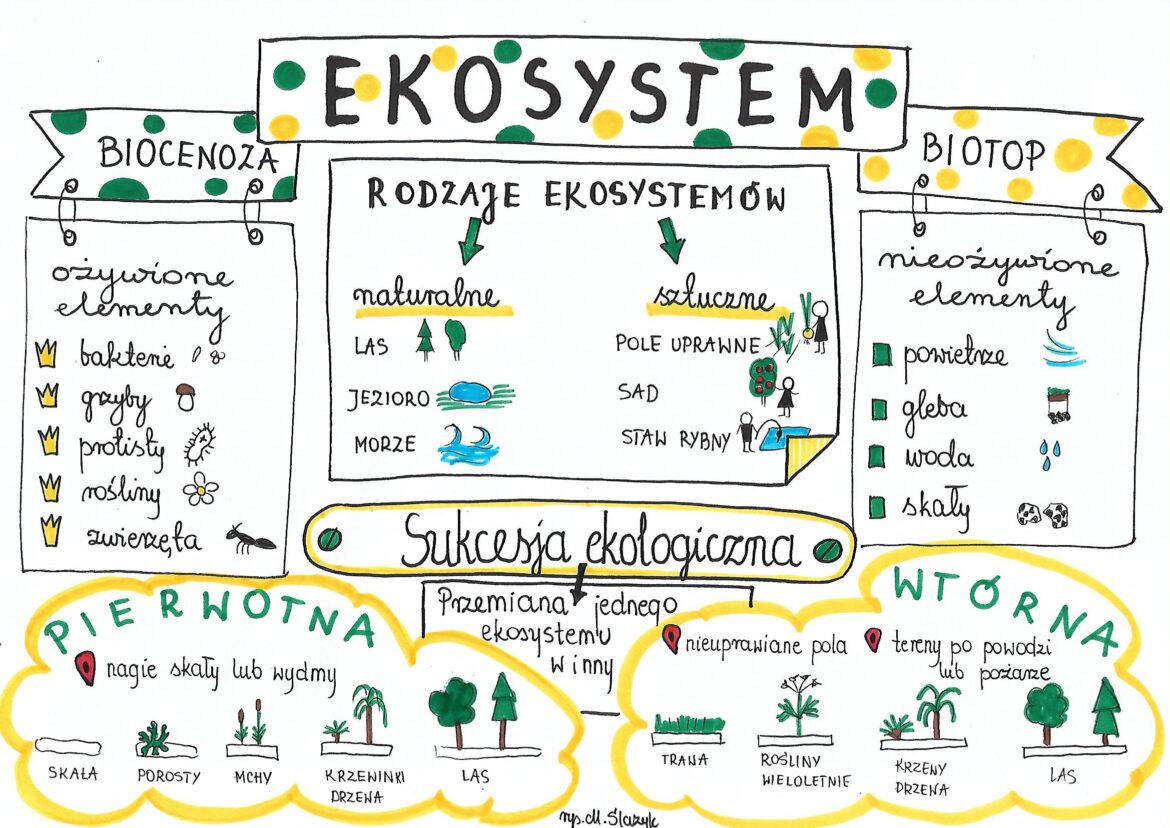 EKOSYSTEM
BIOCENOZA
ożywione
elementy
bakterie
grzyby
protisty
rośliny
zwierzęta
RODZAJE EKOSYSTEMÓW
naturalne
LAS
JEZIORO
MORZE
sztuczne
POLE UPRAWNE
SAD
STAW RYBNY
BIOTOP
nieożywione
elementy
powietrze
gleba
woda
skały
Sukcesja ekologiczna
Przemiana jednego
ekosystemu
w inny
PIERWOTNA
nagie skały lub wydmy
SKAŁA
POROSTY
MCHY
KRZENINKI
DRZEWA
LAS
WTÓRNA
nieuprawiane pola
tereny po powodzi
lub pożarze
TRAWA
ROŚLINY
WIELOLETNIE
KRZEWY
DRZEWA
LAS
rys. M. Ślazyk